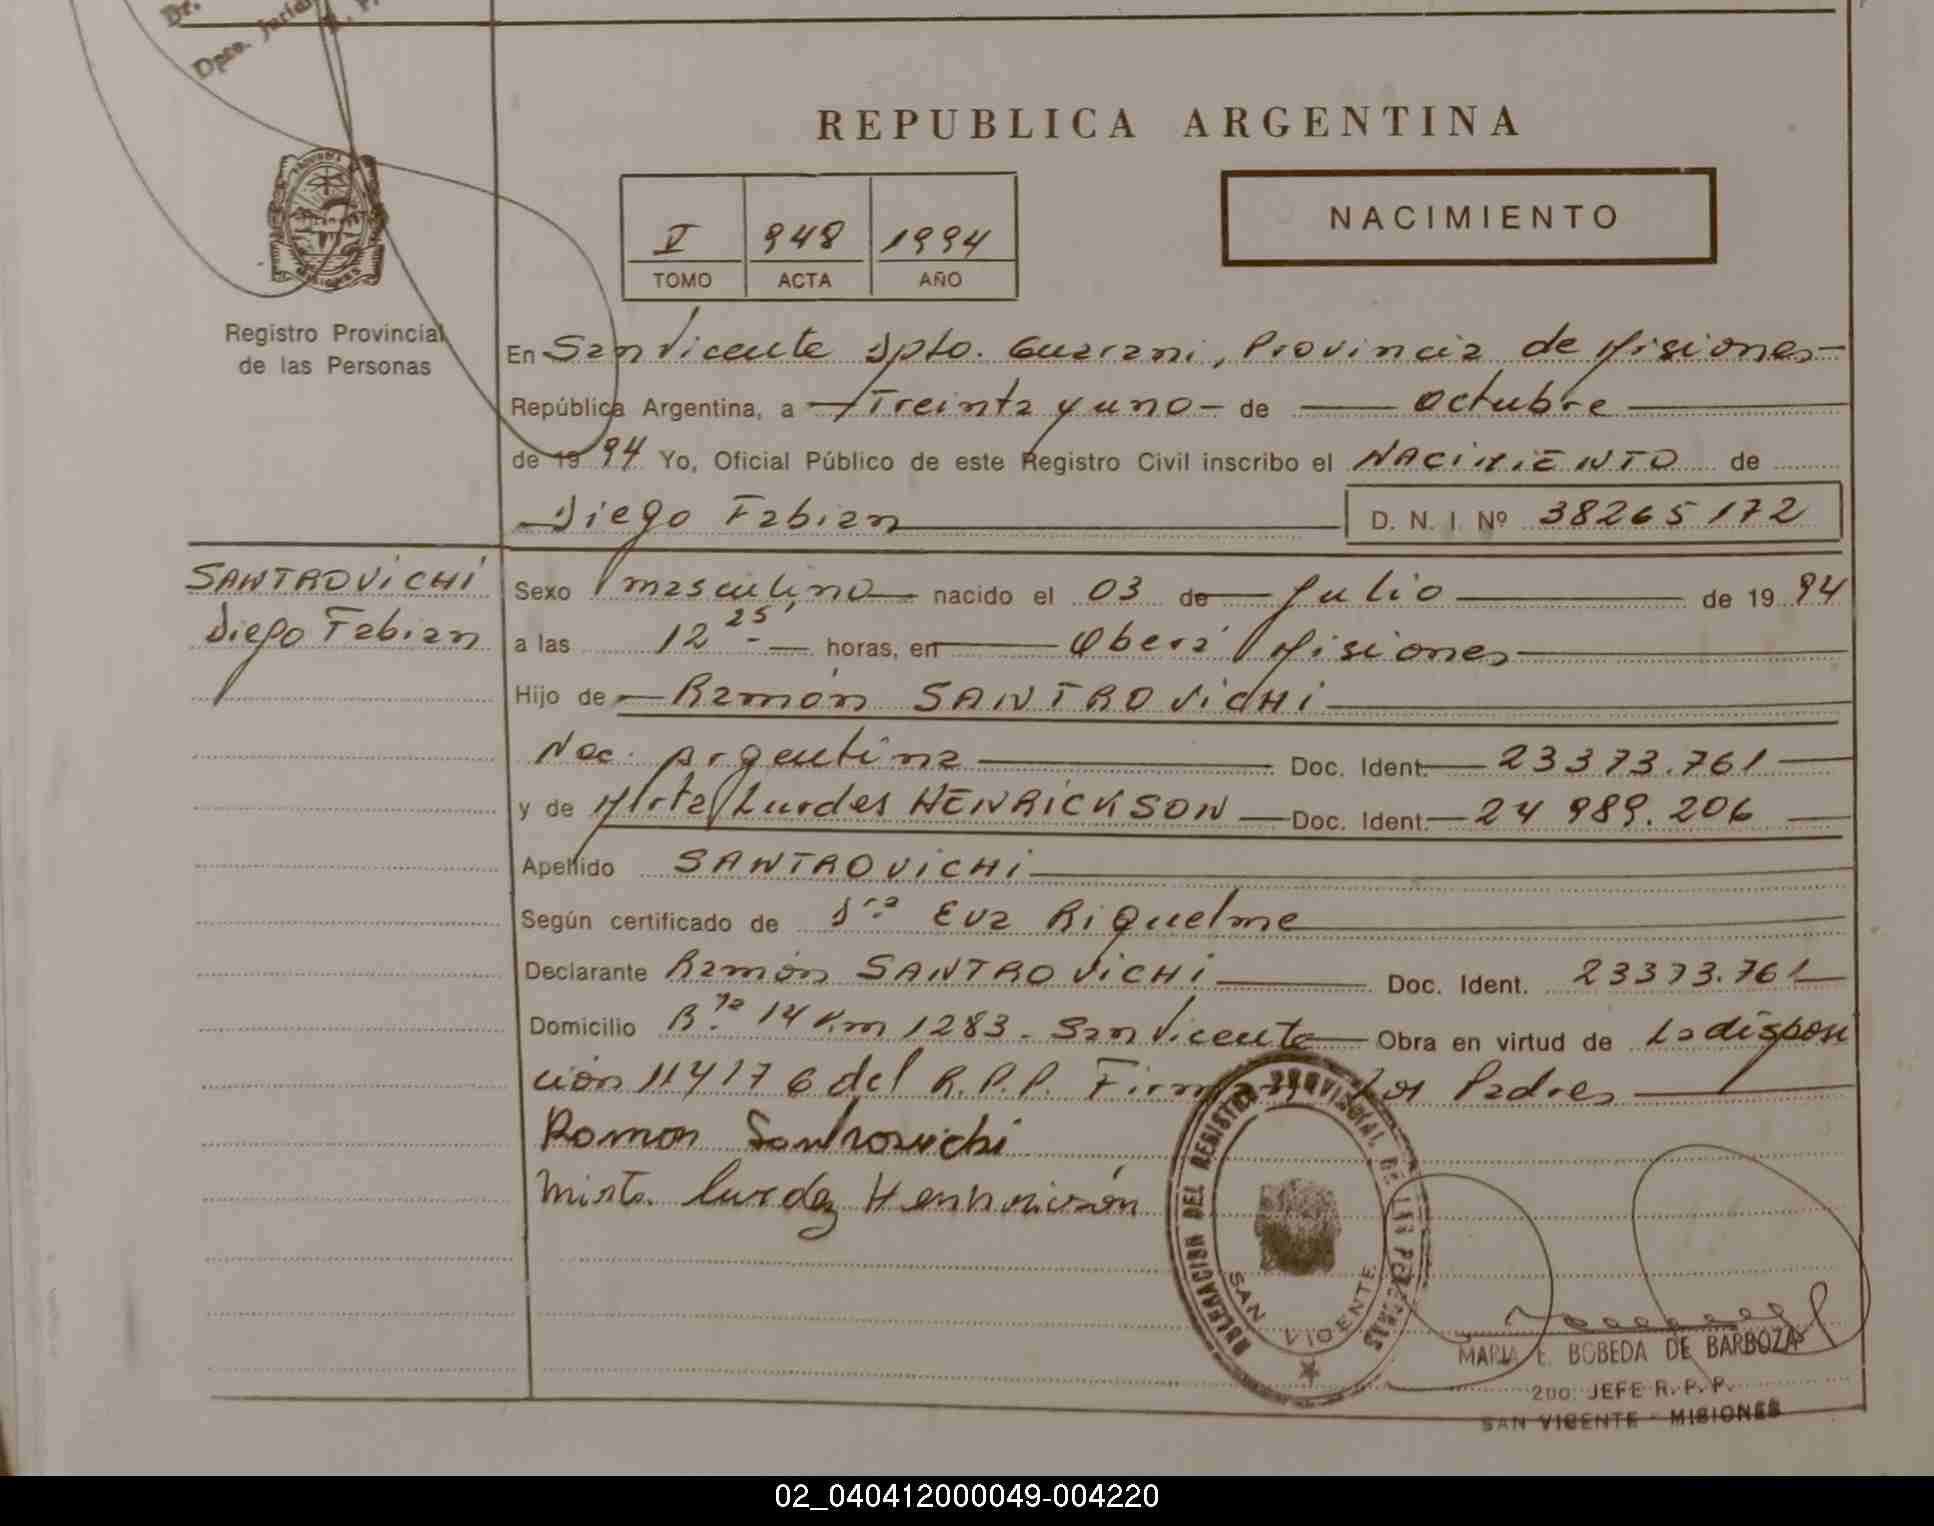 Dr.
Dpto. Juríd
REPUBLICA ARGENTINA
NACIMIENTO
V 948 1994
TOMO ACTA AÑO
Registro Provincial
de las Personas
En San Vicente Dpto. Guarani, Provincia de Misiones
República Argentina, a Treinta y uno de octubre
de 1994 Yo, Oficial Público de este Registro Civil inscribo el NACIMIENTO de
Diego Fabian D. N. I. Nº 38265172
SANTROVICHI
Diego Fabian
Sexo masculino nacido el 03 de Julio de 1994
a las 12 25 horas, en Oberá Misiones
Hijo de Ramón SANTROVICHI
Nac. Argentina Doc. Ident. 23373.761
y de Mirta Lurdes HENRICKSON Doc. Ident. 24 989.206
Apellido SANTROVICHI
Según certificado de Dra Eva Riquelme
Declarante Ramón SANTROVICHI Doc. Ident. 23373.761
Domicilio Bº 14 Km 1283. San Vicente Obra en virtud de La disposi
ción 114176 del R.P.P. Firman Los Padres
Ramon Santrovichi
Mirta Lurdez
DELEGACION DEL REGISTRO PROVINCIAL DE LAS PERSONAS
SAN VICENTE
MARIA E. BOBEDA DE BARBOZA
2DO. JEFE R. P. P.
SAN VICENTE - MISIONES
02_040412000049-004220